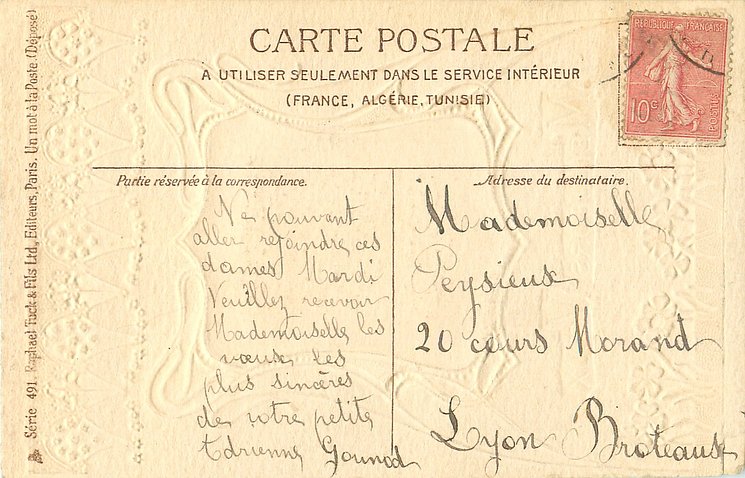 CARTE POSTALE
A UTILISER SEULEMENT DANS LE SERVICE INTÉRIEUR
(FRANCE, ALGÉRIE, TUNISIE)
RÉPUBLIQUE FRANÇAISE
10 c
POSTES
Série 491. Raphael Tuck & Fils Ltd, Editeurs, Paris. Un mot à la Poste. (Déposé)
Partie réservée à la correspondance.
Ne pouvant
aller rejoindre ces
dames Mardi
Veuillez recevoir
Mademoiselle les
vœux les
plus sincères
de votre petite
Adrienne Gounod
Adresse du destinataire.
Mademoiselle
Peysieux
20 cours Morand
Lyon Broteaux